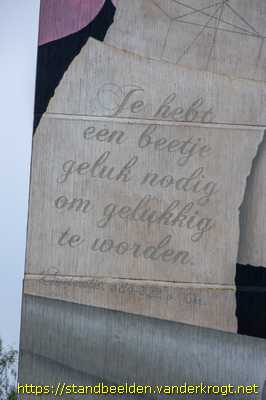 Je hebt
een beetje
geluk nodig
om gelukkig
te worden.
https://standbeelden.vanderkrogt.net